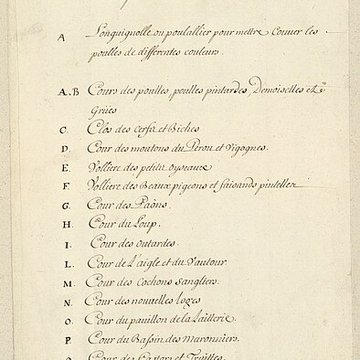 A Longuignolle ou poulallier pour mettre Couuer les
poulles de differentes couleurs.
A.B Cours des poulles, poulles pintardes, Demoiselles et
Grües
C. Clos des cerfs et Biches
D. Cour des moutons du Pérou et Vigognes.
E. Volliere des petits oyseaux
F. Volliere des Beaux pigeons et faisands pintellez
G. Cour des Paôns.
H. Cour du Loup.
I. Cour des outardes.
L. Cour de L'aigle et du Vautour.
M. Cour des Cochons sangliers.
N. Cour des nouuelles loges
O. Cour du pauillon de la Laitterie.
P. Cour du Bassin des Maronniers.
Q. Cour des Castors et Truittes